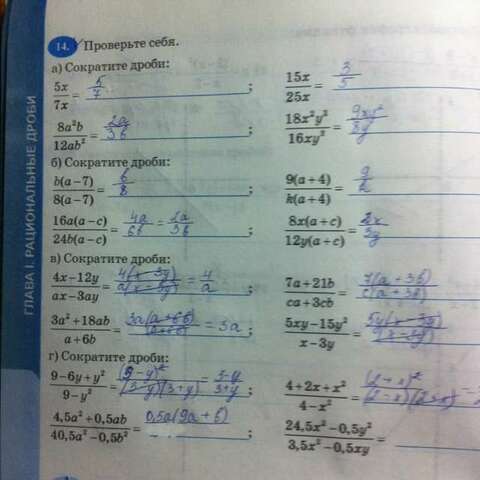 ГЛАВА I. РАЦИОНАЛЬНЫЕ ДРОБИ
14. Проверьте себя.
а) Сократите дроби:
5x/7x = 5/7 ; 15x/25x = 3/5
8a²b/12ab² = 2a/3b ; 18x²y²/16xy² =
б) Сократите дроби:
b(a−7)/8(a−7) = b/8 ; 9(a+4)/k(a+4) = 9/k
16a(a−c)/24b(a−c) = 4a/6b = 2a/3b ; 8x(a+c)/12y(a+c) = 2x/3y
в) Сократите дроби:
4x−12y/ax−3ay = 4(x−3y)/a(x−3y) = 4/a ; 7a+21b/ca+3cb = 7(a+3b)/c(a+3b)
3a²+18ab/a+6b = 3a(a+6b)/(a+6b) = 3a ; 5xy−15y²/x−3y = 5y(x−3y)/(x−3y)
г) Сократите дроби:
9−6y+y²/9−y² = (3−y)²/(3−y)(3+y) = 3−y/3+y ; 4+2x+x²/4−x² = (2+x)²/(2−x)(2+x)
4,5a²+0,5ab/40,5a²−0,5b² = 0,5a(9a+b) ; 24,5x²−0,5y²/3,5x²−0,5xy =